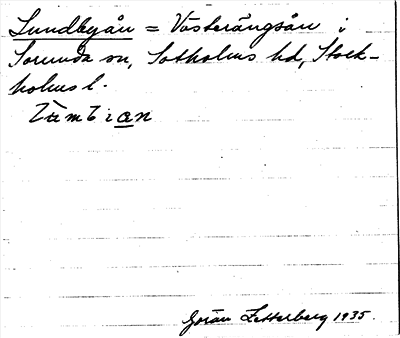 Lundbyån = Västerängsån i
Sorunda sn, Sotholms hd, Stock-
holms l.
Göran Zetterberg 1935.